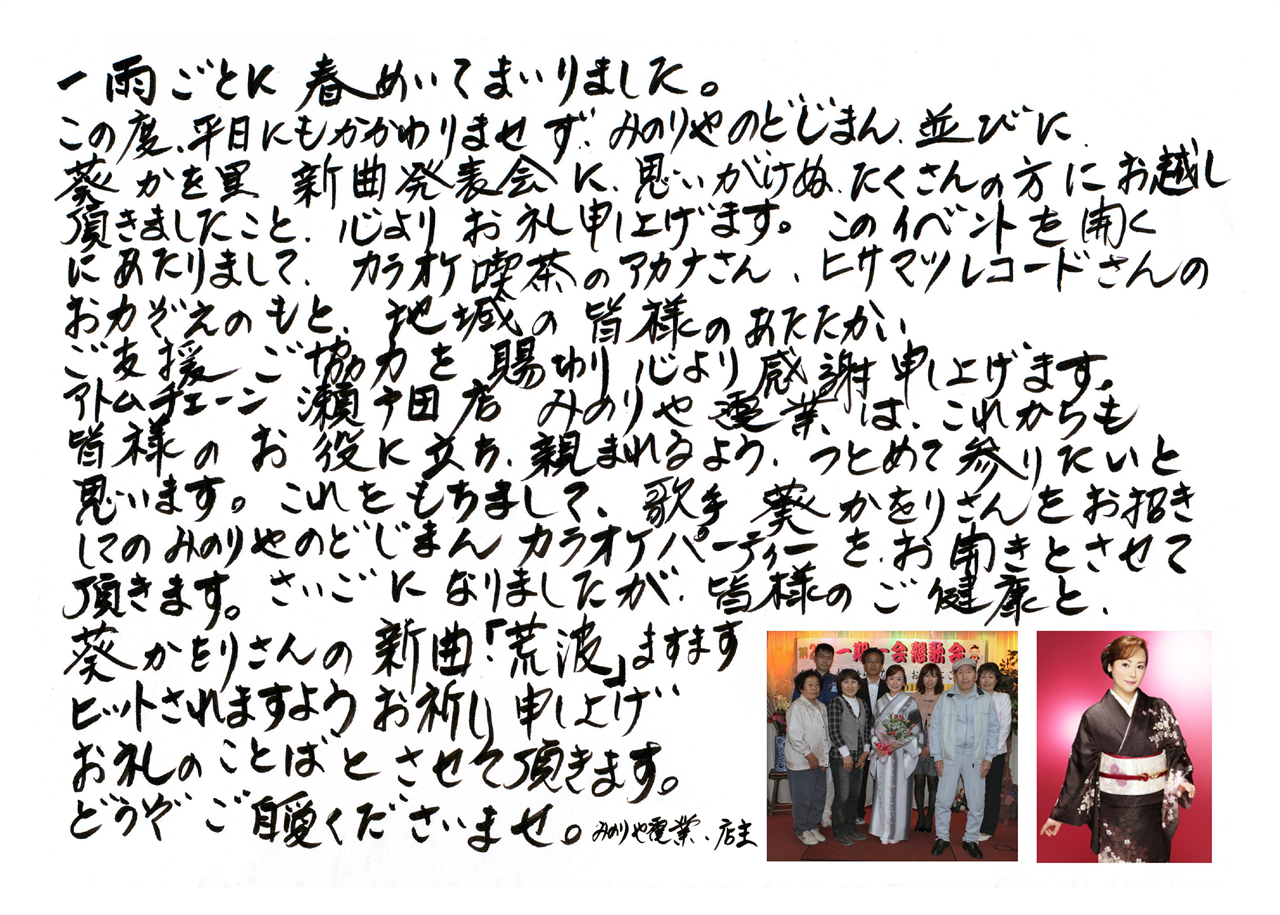 一雨ごとに 春めいてまいりました。
この度、平日にもかかわりませず、みのりやのどじまん、並びに、
葵かを里 新曲発表会に、思いがけぬ、たくさんの方にお越し
頂きましたこと、心よりお礼申し上げます。このイベントを開く
にあたりまして、カラオケ喫茶のアカナさん、ヒサマツレコードさんの
お力ぞえのもと、地域の皆様のあたたかい、
ご支援 ご協力を賜わり心より感謝申し上げます。
アトムチェーン 瀬戸田店 みのりや電業は、これからも
皆様のお役に立ち、親まれるよう、つとめて参りたいと
思います。これをもちまして、歌手 葵かをりさんをお招き
してのみのりやのどじまんカラオケパーティーを、お開きとさせて
頂きます。さいごになりましたが、皆様のご健康と、
葵かをりさんの新曲「荒波」ますます
ヒットされますようお祈りし申し上げ
お礼のことばとさせて頂きます。
どうぞご自愛くださいませ。みのりや電業、店主
一期一会懇歌会